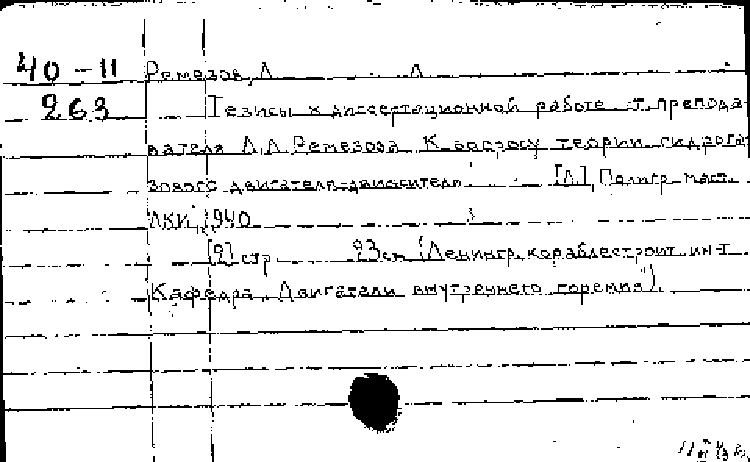 40-11 Ремезов, Л. Л.
263 Тезисы к диссертационной работе т. препода-
вателя Л.Л. Ремезова К вопросу теории гидрога-
зового двигателя-движителя. [Л.], Полигр. маст.
ЛКИ, 1940
[2] стр. 23 см (Ленингр. кораблестроит. ин-т
Кафедра "Двигатели внутреннего горения").